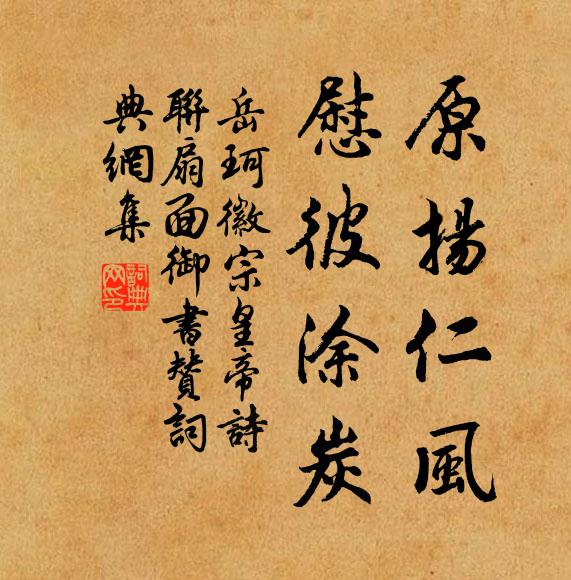 原揚仁風
慰彼涂炭
岳珂徽宗皇帝詩
聯扇面御書贊詞
典網集
詞典
网印